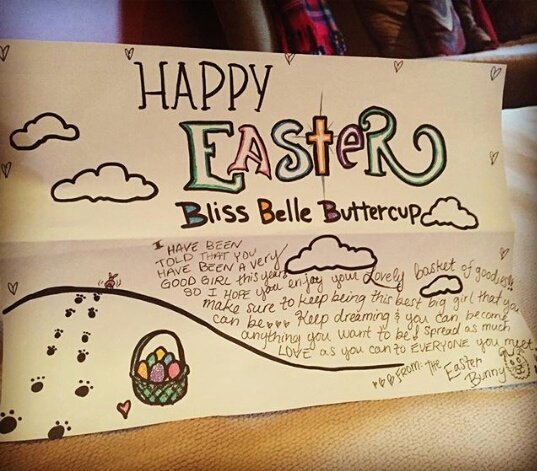 HAPPY
EASteR
Bliss Belle Buttercup
I HAVE BEEN
TOLD THAT YOU
HAVE BEEN A VERY
GOOD GIRL this year
SO I HOPE you enjoy your Lovely basket of goodies!!
make sure to keep being this best big girl that you
can be Keep dreaming & you can become
anything you want to be! Spread as much
LOVE as you can to EVERYONE you meet
FROM: THE
Easter
Bunny